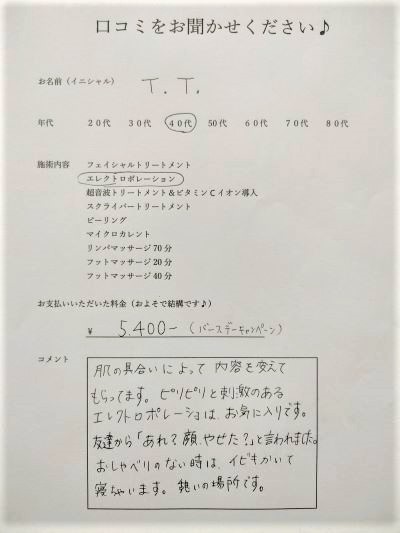 口コミをお聞かせください♪
お名前（イニシャル） T.T.
年代 20代 30代 40代 50代 60代 70代 80代
施術内容 フェイシャルトリートメント
エレクトロポレーション
超音波トリートメント&ビタミンCイオン導入
スクライバートリートメント
ピーリング
マイクロカレント
リンパマッサージ70分
フットマッサージ20分
フットマッサージ40分
お支払いいただいた料金（およそで結構です♪）
¥ 5.400-（バースデーキャンペーン）
コメント
肌の具合いによって内容を変えて
もらってます。ピリピリと刺激のある
エレクトロポレーショは、お気に入りです。
友達から「あれ?顔、やせた?」と言われました。
おしゃべりのない時は、イビキかいて
寝ちゃいます。憩いの場所です。